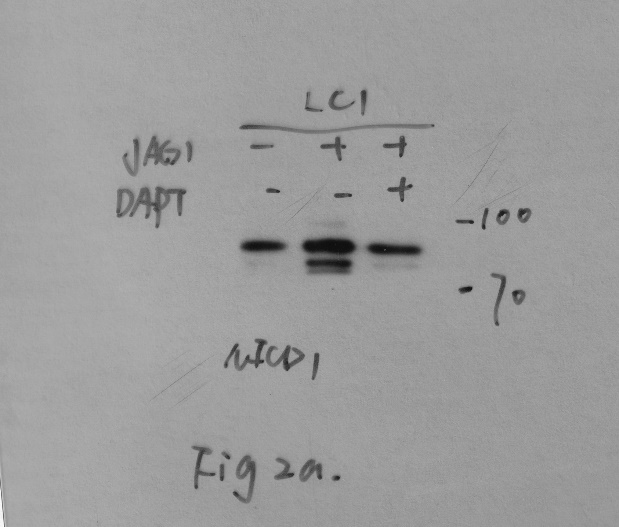 LC1
JAG1 - + +
DAPT - - +
-100
-70
NICD1
Fig 2a.